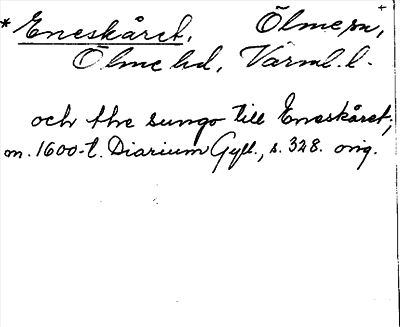 * Eneskåret, Ölme sn, +
Ölme hd, Värml. l.
och the sungo till Eneskåret;
m. 1600-t. Diarium Gyll., s. 328. orig.